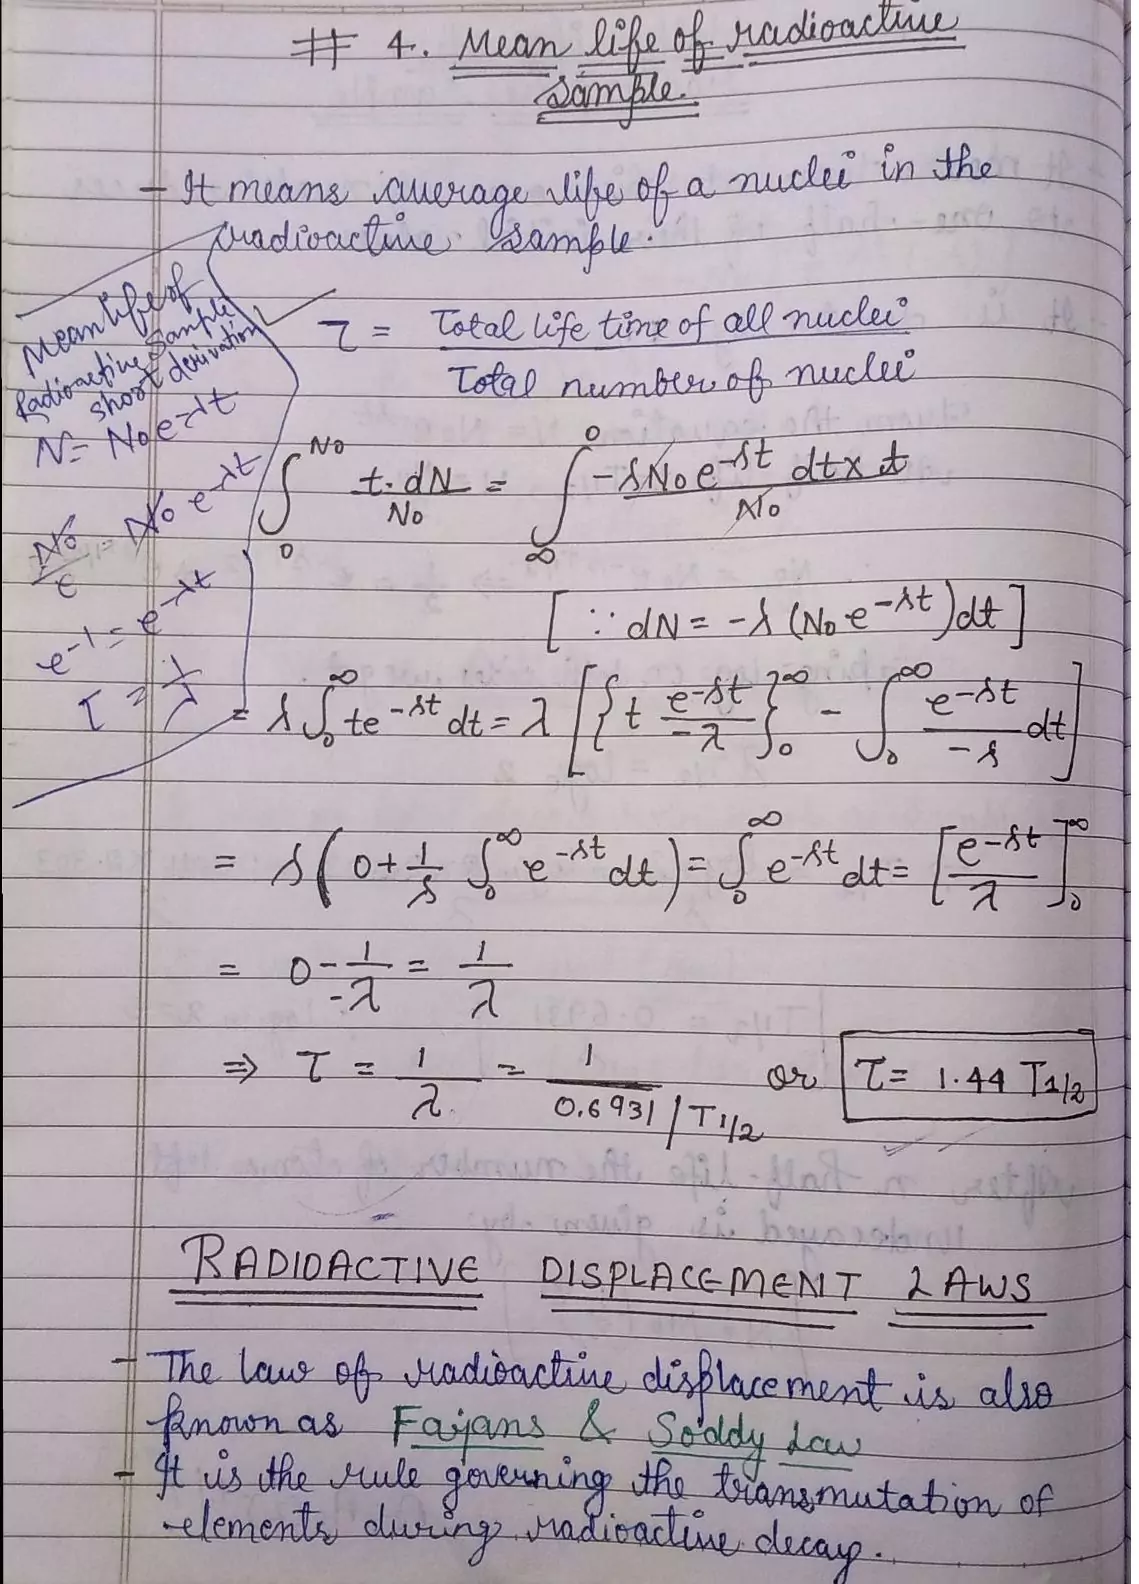 # 4. Mean life of radioactive
sample.
- It means average life of a nuclei in the
radioactive sample.
Mean life of
Radioactive Sample
short derivation
N = N₀e^-λt
N₀/e = N₀ e^-λt
e^-1 = e^-λt
τ = 1/λ
τ = Total life time of all nuclei / Total number of nuclei
∫₀^N₀ t.dN/N₀ = ∫_∞^0 -λN₀e^-λt dt × t / N₀
[∵ dN = -λ (N₀ e^-λt) dt]
= λ ∫₀^∞ te^-λt dt = λ [{t e^-λt/-λ}₀^∞ - ∫₀^∞ e^-λt/-λ dt]
= λ (0 + 1/λ ∫₀^∞ e^-λt dt) = ∫₀^∞ e^-λt dt = [e^-λt/λ]₀^∞
= 0 - 1/-λ = 1/λ
⇒ τ = 1/λ = 1/0.6931/T1/2 or τ = 1.44 T1/2
RADIOACTIVE DISPLACEMENT LAWS
- The law of radioactive displacement is also
known as Fajans & Soddy Law
- It is the rule governing the transmutation of
elements during radioactive decay.